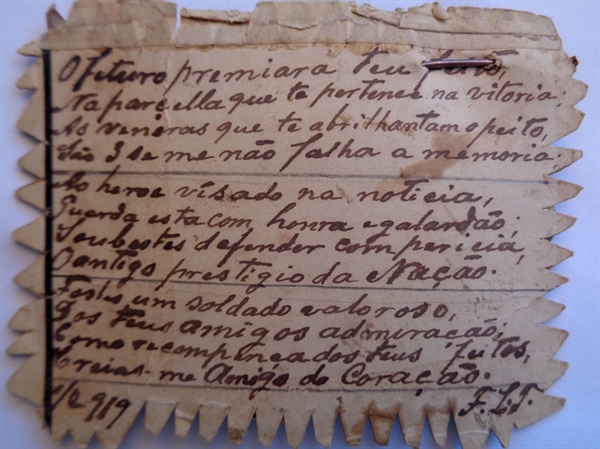 O futuro premiara teu feito,
Na parcella que te pertence na vitoria;
As veneras que te abrilhantam o peito,
São 3 se me não falha a memoria.
Ao heroe visado na noticia,
Guarda esta com honra e galardão;
Soubestes defender com pericia,
O antigo prestigio da Nação.
Fostes um soldado valoroso,
Dos teus amigos admiração;
Como recompença dos teus feitos,
Creias-me Amigo do Coração.
1/2 919 F. L. T.